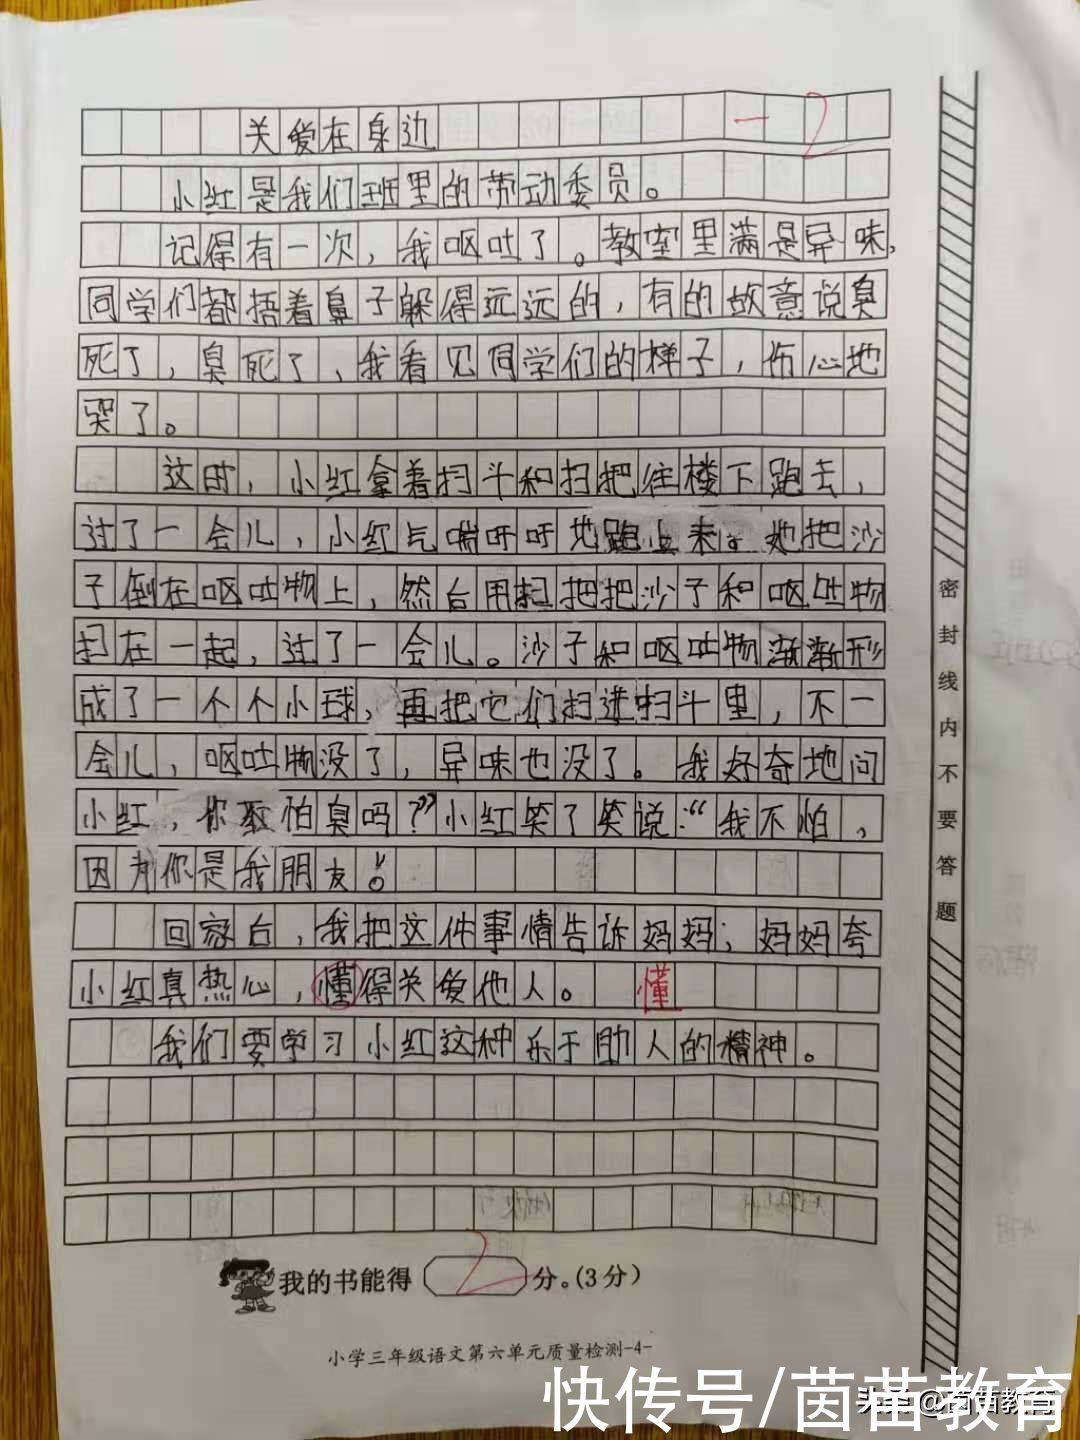 关爱在身边 -2
小红是我们班里的劳动委员。
记得有一次,我呕吐了。教室里满是异味,
同学们都捂着鼻子躲得远远的,有的故意说臭
死了,臭死了、我看见同学们的样子,伤心地
哭了。
这时,小红拿着扫斗和扫把往楼下跑去,
过了一会儿,小红气喘吁吁地跑上来。她把沙
子倒在呕吐物上,然台用扫把把沙子和呕吐物
扫在一起,过了一会儿。沙子和呕吐物渐渐形
成了一个个小球,再把它们扫进扫斗里,不一
会儿,呕吐物没了,异味也没了。我好奇地问
小红,你不怕臭吗?”小红笑了笑说:“我不怕,
因为你是我朋友!
回家台,我把这件事情告诉妈妈;妈妈夸
小红真热心,懂得关爱他人。 懂
我们要学习小红这种乐于助人的精神。
我的书能得 2 分。(3分)
小学三年级语文第六单元质量检测-4-
密封线内不要答题
头条 @茵苗教育
快传号/茵苗教育